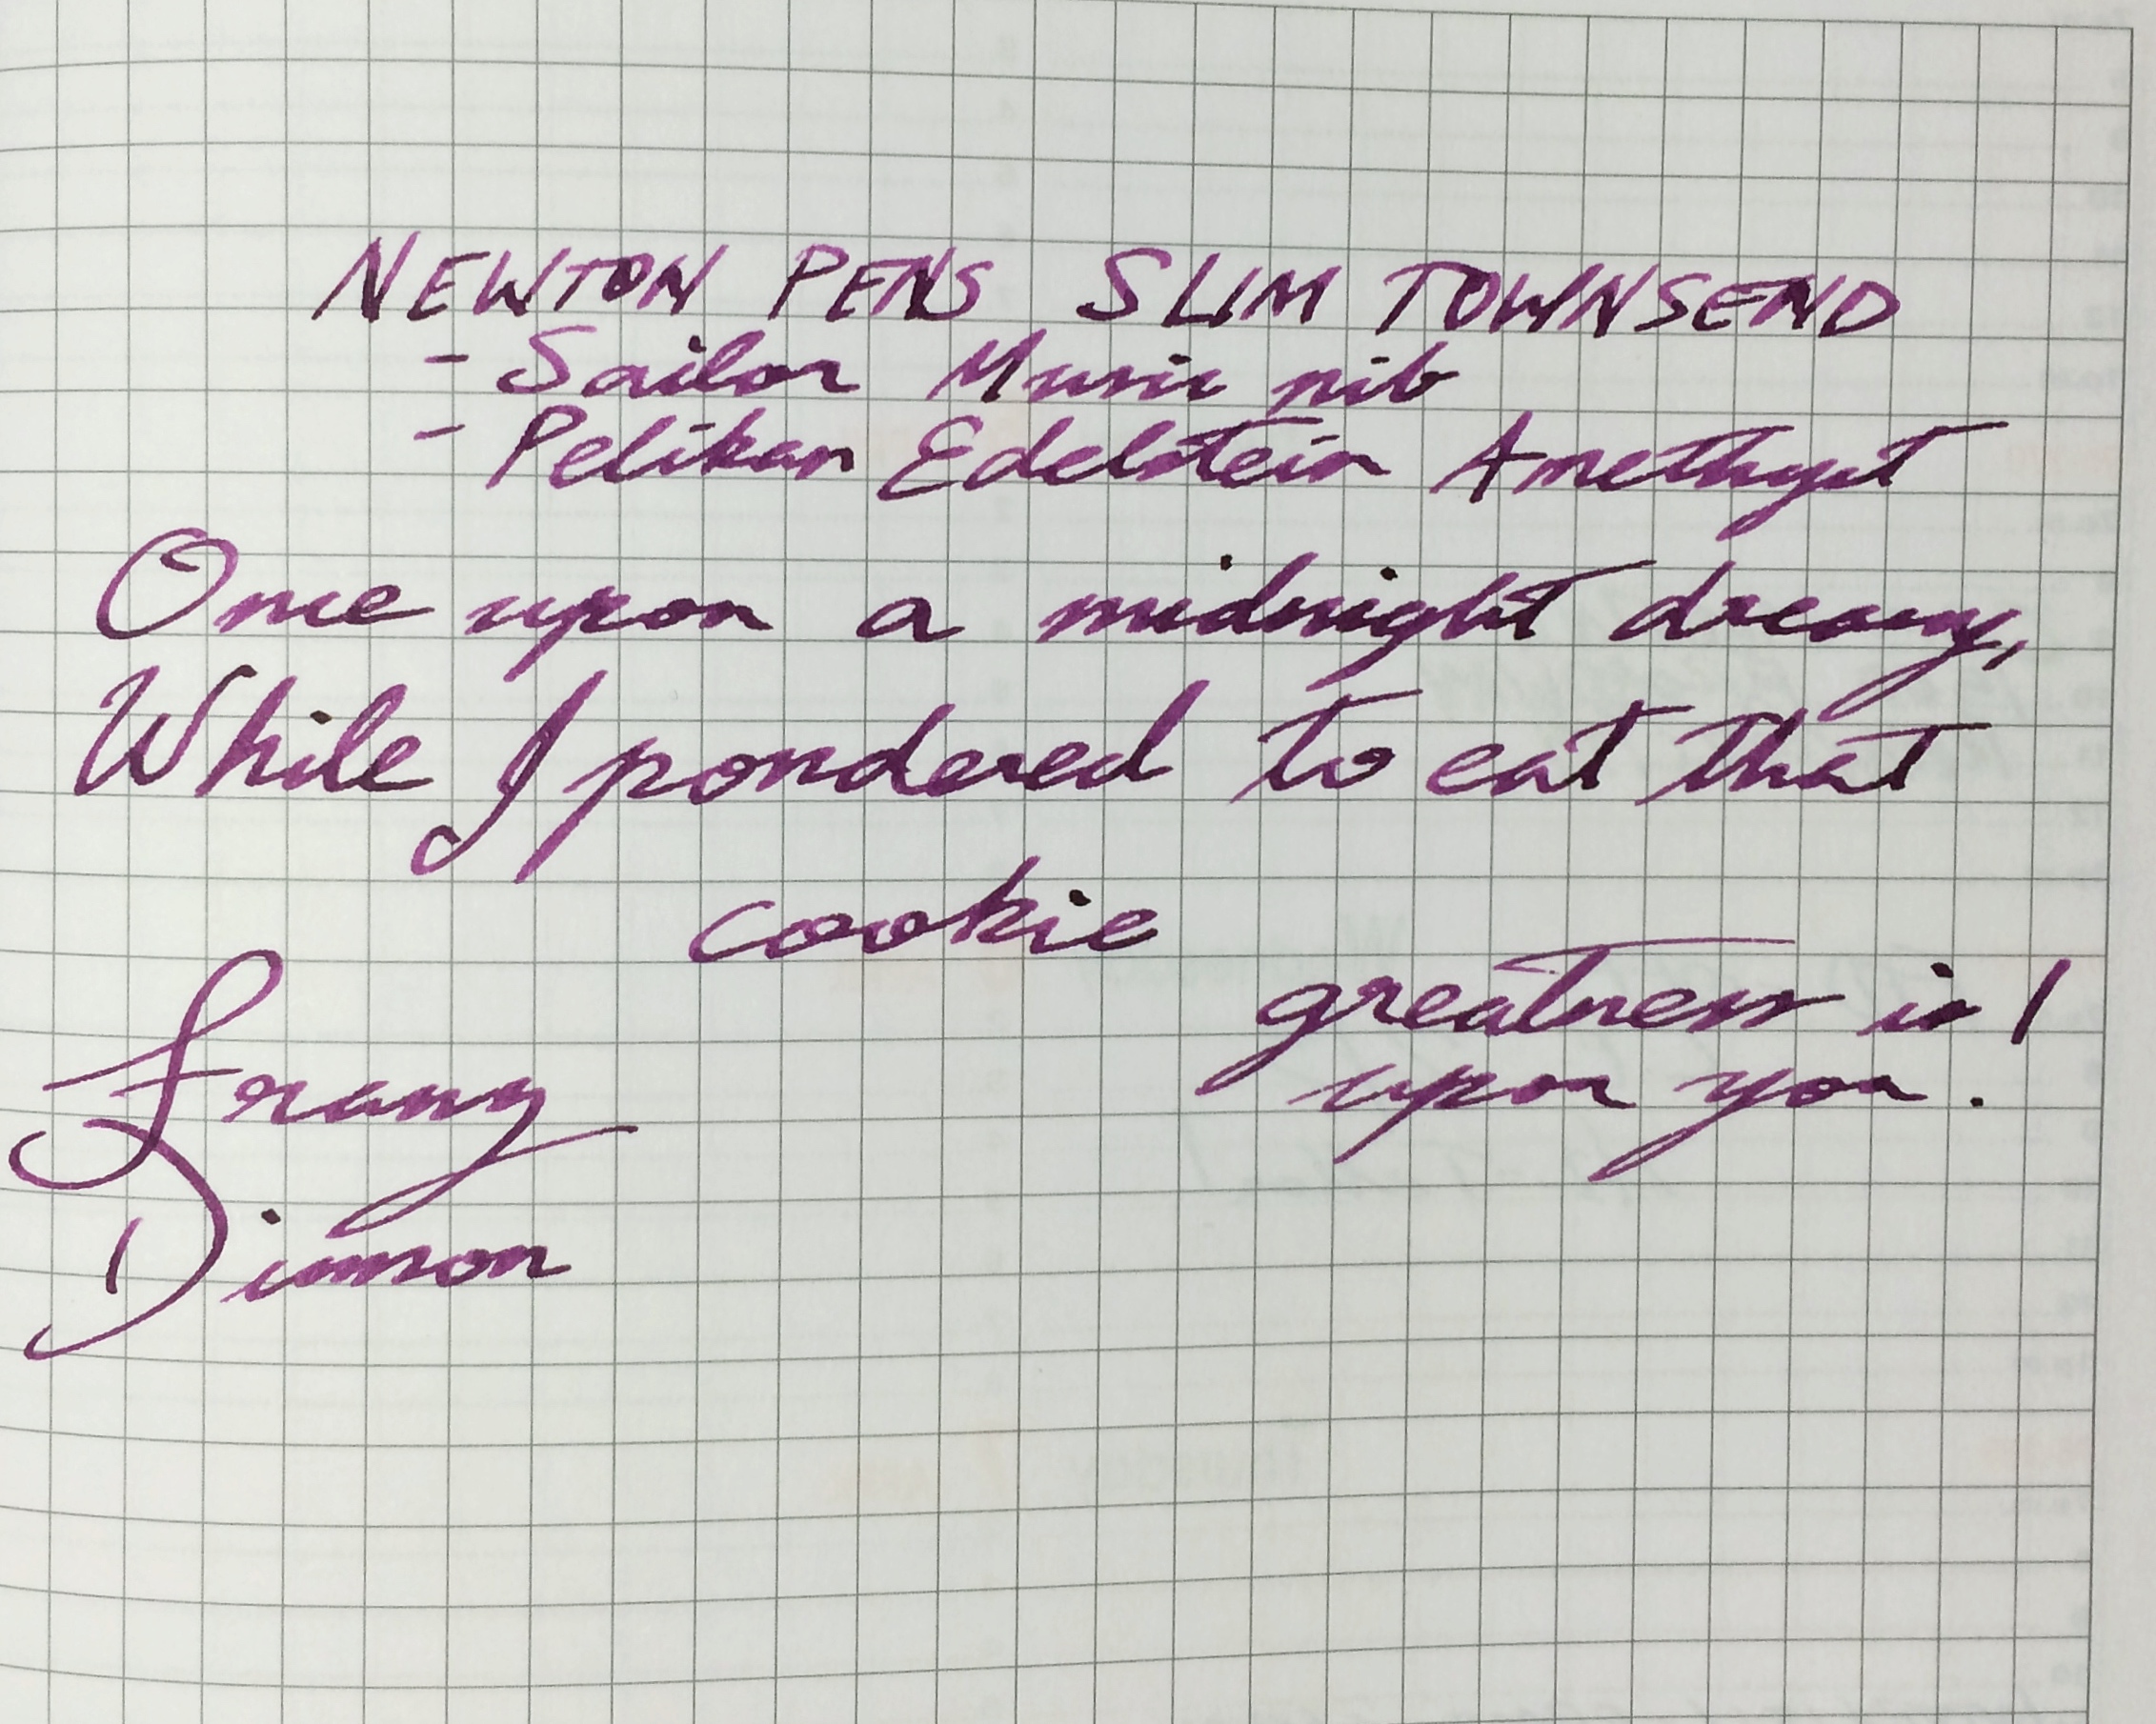 NEWTON PENS SLIM TOWNSEND
- Sailor Music nib
- Pelikan Edelstein Amethyst
Once upon a midnight dreary,
While I pondered to eat that
cookie
greatness is!
upon you.
Franz
Dimson